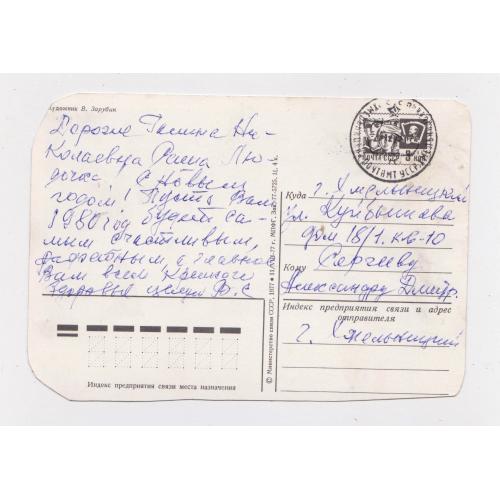 Художник В. Зарубин
Дорогие Галина Ни-
колаевна Рения Лю-
дочка. С Новым
годом! Пусть Вам
1980 год будет са-
мым счастливым,
радостным, а главное
Вам всем крепкого
Здоровья целуем Ф. С
ПОЧТА СССР
Куда г. Хмельницкий
ул. Куйбышева
дом 18/1. кв-10
Кому Сергееву
Александру Дмитр.
Индекс предприятия связи и адрес
отправителя
г. Хмельницкий
Индекс предприятия связи места назначения
© Министерство связи СССР, 1977